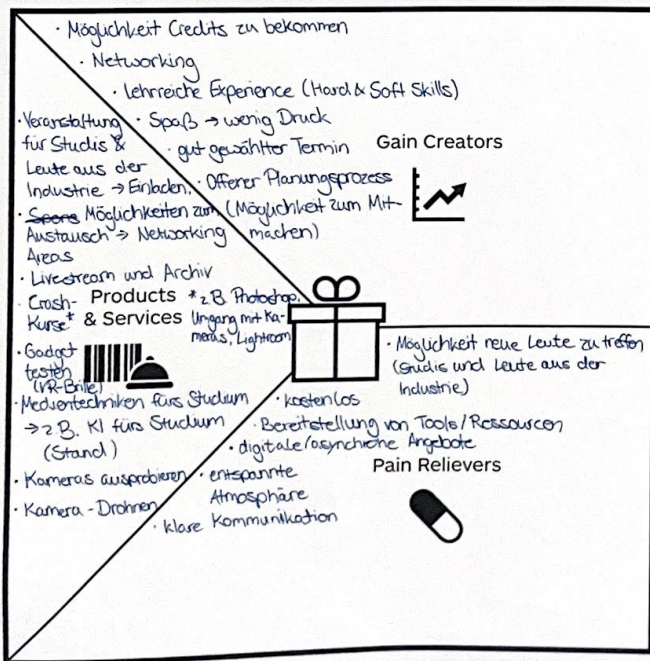 · Möglichkeit Credits zu bekommen
· Networking
· lehrreiche Experience (Hard & Soft Skills)
· Spaß → wenig Druck
· gut gewählter Termin
· Offener Planungsprozess
(Möglichkeit zum Mit-
machen)
Gain Creators
· Veranstaltung
für Studis &
Leute aus der
Industrie → Einladen
· Spons Möglichkeiten zum
Austausch → Networking
Areas
· Livestream und Archiv
· Crash-
Kurse*
* z.B. Photoshop,
Umgang mit Ka-
meras, Lightroom
Products
& Services
· Gadget
testen
(VR-Brille)
· Medientechniken fürs Studium
→ z.B. KI fürs Studium
(Stand)
· Kameras ausprobieren
· Kamera-Drohnen
· Möglichkeit neue Leute zu treffen
(Studis und Leute aus der
Industrie)
· kostenlos
· Bereitstellung von Tools/Ressourcen
· digitale/asynchrone Angebote
Pain Relievers
· entspannte
Atmosphäre
· klare Kommunikation